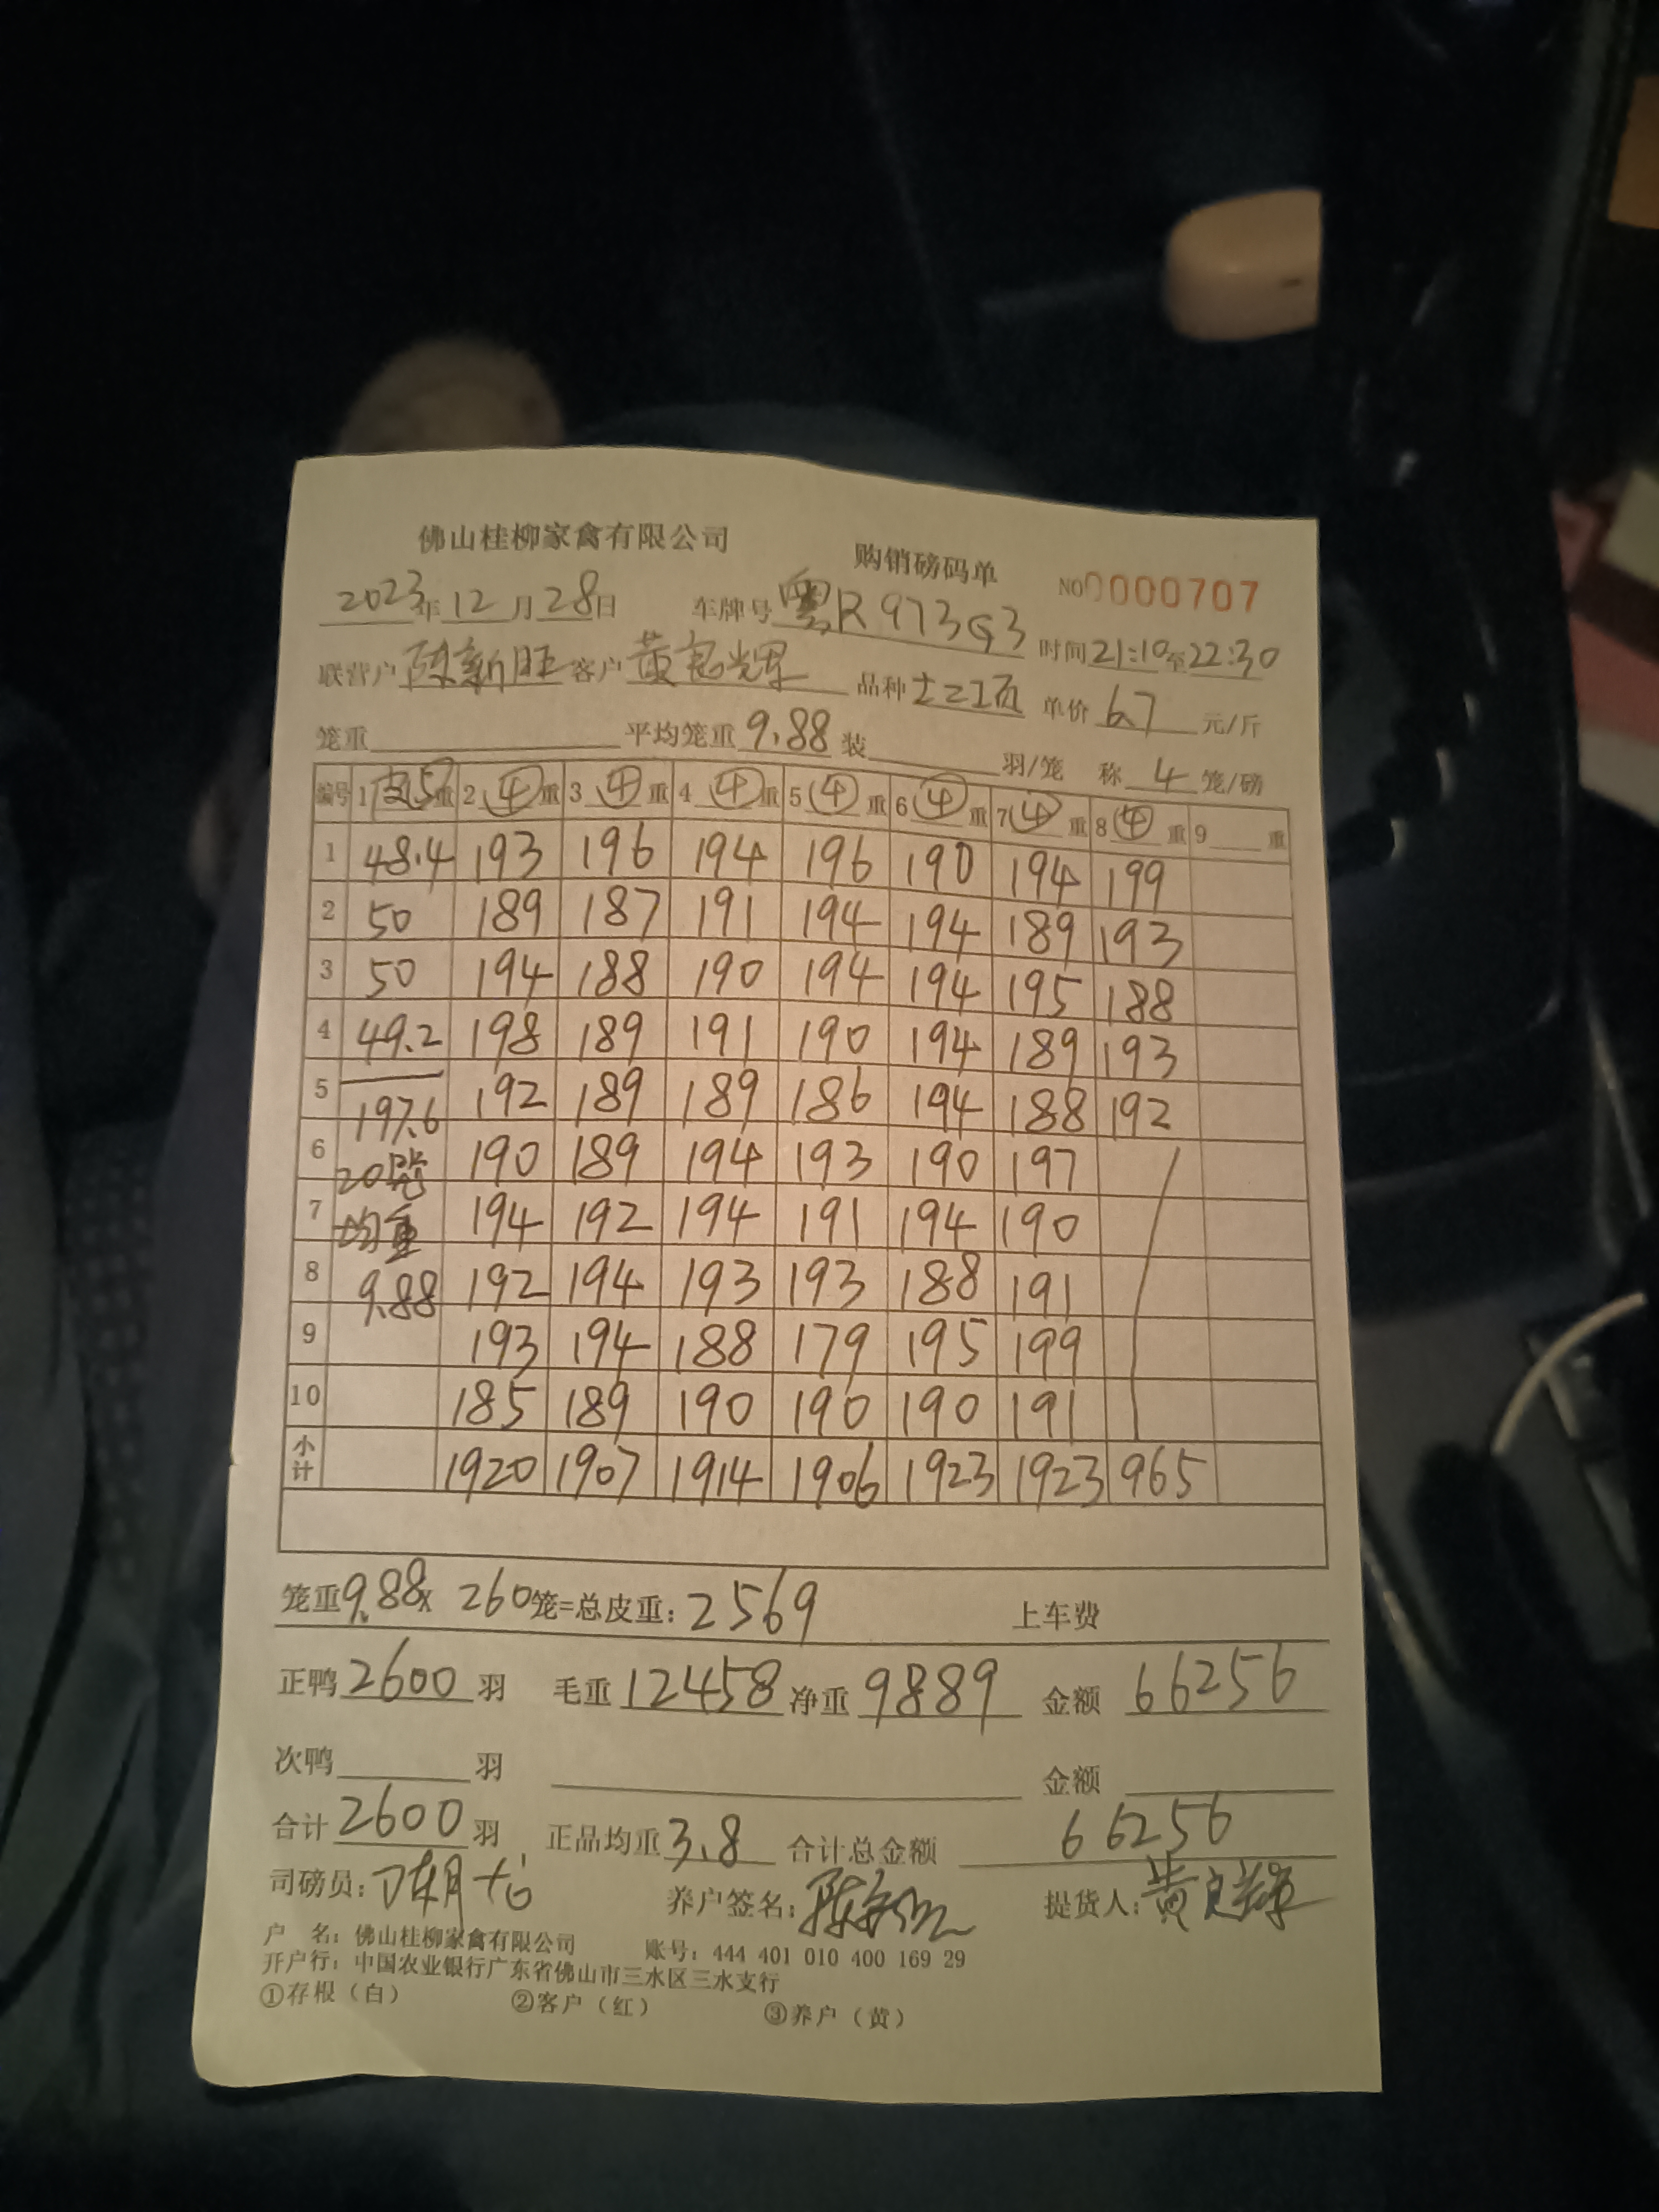 佛山桂柳家禽有限公司 购销磅码单 NO 0000707
2023年12月28日 车牌号 粤R973G3 时间21:10至22:30
联营户 陈新旺 客户 黄 辉 品种 单价 6.7 元/斤
笼重 平均笼重 9.88 装 羽/笼 称 4 笼/磅
编号 1 皮5 重 2 ④ 重 3 ④ 重 4 ④ 重 5 ④ 重 6 ④ 重 7 ④ 重 8 ④ 重 9 重
1 48.4 193 196 194 196 190 194 199
2 50 189 187 191 194 194 189 193
3 50 194 188 190 194 194 195 188
4 49.2 198 189 191 190 194 189 193
5 197.6 192 189 189 186 194 188 192
6 20笼 190 189 194 193 190 197
7 均重 194 192 194 191 194 190
8 9.88 192 194 193 193 188 191
9 193 194 188 179 195 199
10 185 189 190 190 190 191
小计 1920 1907 1914 1906 1923 1923 965
笼重9.88× 260笼=总皮重: 2569 上车费
正鸭 2600 羽 毛重 12458 净重 9889 金额 66256
次鸭 羽 金额
合计 2600 羽 正品均重 3.8 合计总金额 66256
司磅员: 养户签名: 陈 提货人: 黄 辉
户 名: 佛山桂柳家禽有限公司 账号: 444 401 010 400 169 29
开户行: 中国农业银行广东省佛山市三水区三水支行
①存根（白） ②客户（红） ③养户（黄）